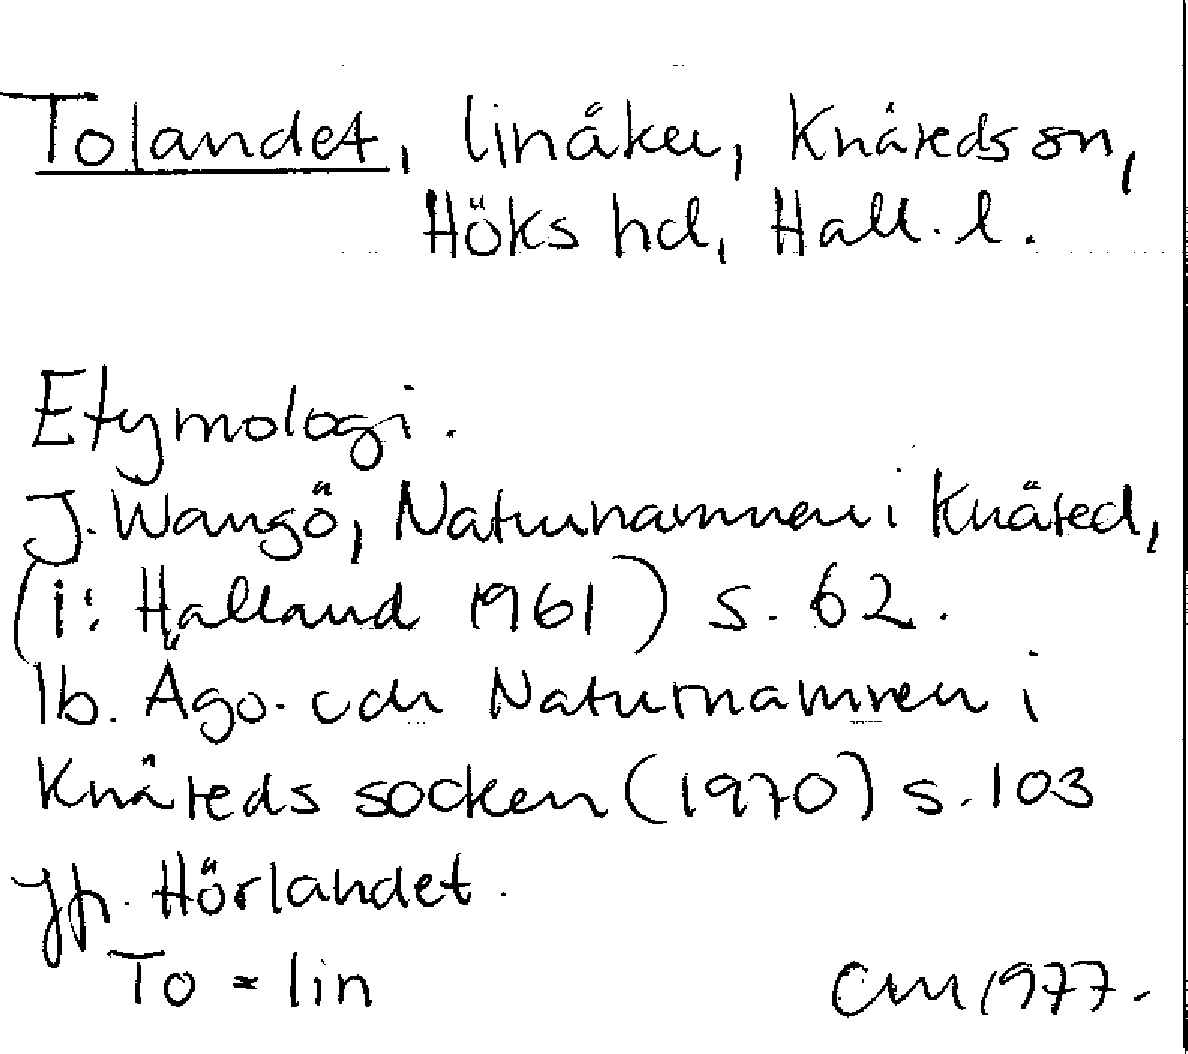 Tolandet, linåker, Knäreds sn,
Höks hd, Hall. l.
Etymologi.
J. Wangö, Naturnamnen i Knäred,
(i: Halland 1961) s. 62.
Ib. Ägo- och Naturnamnen i
Knäreds socken (1970) s. 103
Jfr. Hörlandet.
To = lin
CM 1977.